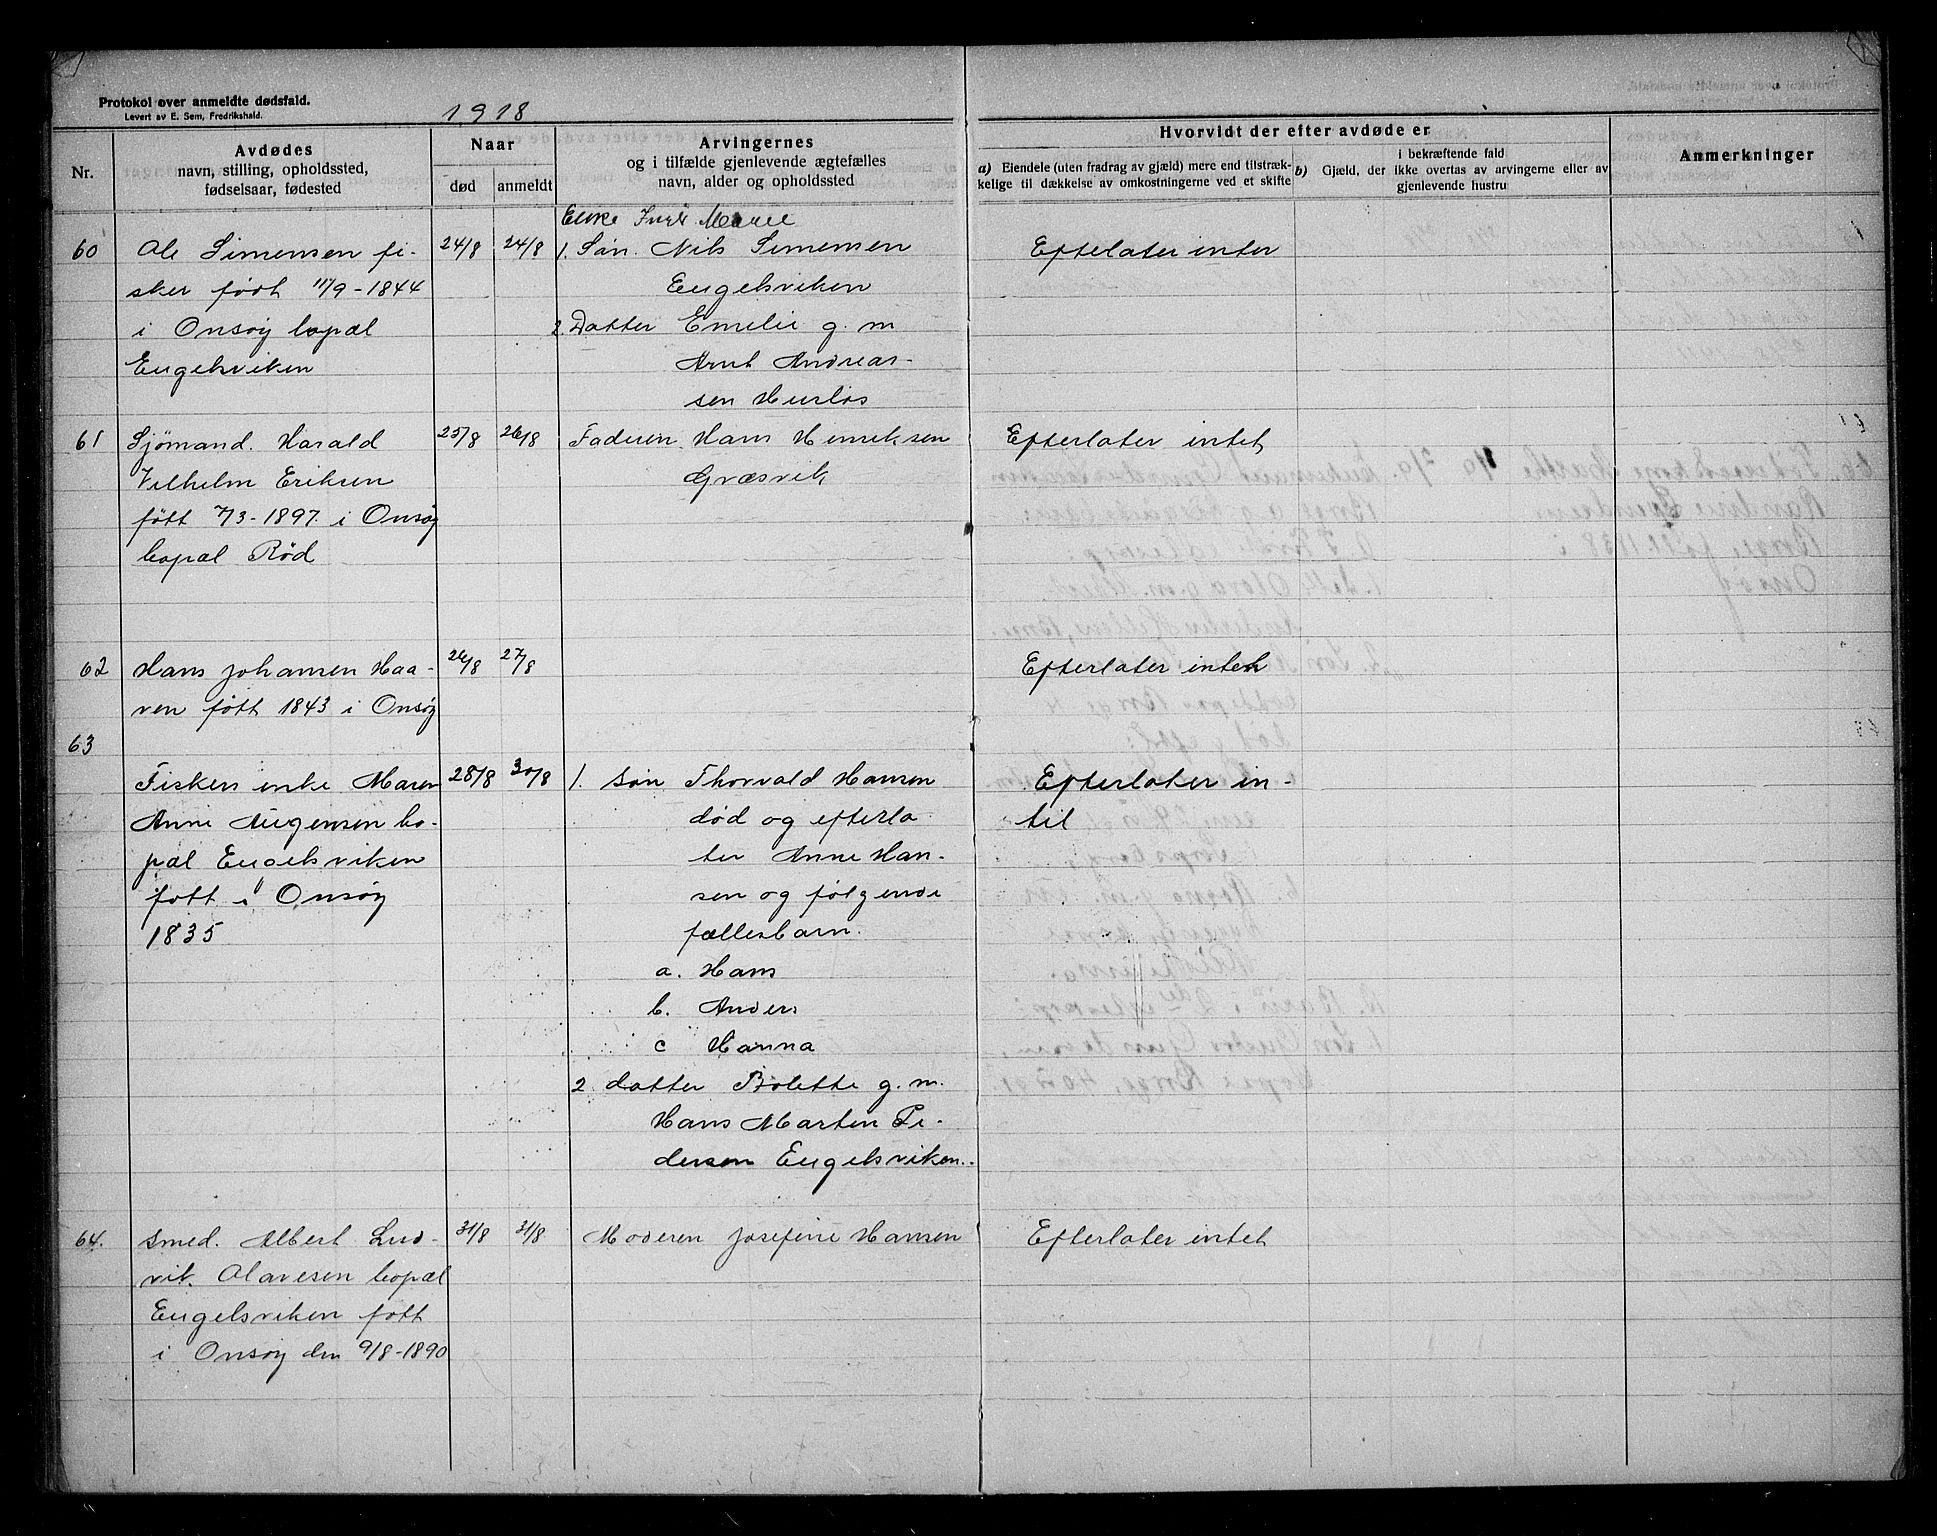 Protokol over anmeldte dødsfald.
Levert av E. Sem, Fredrikshald.
1918
Nr.
Avdødes
navn, stilling, opholdssted,
fødselsaar, fødested
Naar
død
anmeldt
Arvingernes
og i tilfælde gjenlevende ægtefælles
navn, alder og opholdssted
Hvorvidt der efter avdøde er
a) Eiendele (uten fradrag av gjæld) mere end tilstræk-
kelige til dækkelse av omkostningerne ved et skifte
i bekræftende fald
b) Gjæld, der ikke overtas av arvingerne eller av
gjenlevende hustru
Anmerkninger
60
Ole Simensen fi-
sker født 11/9-1844
i Onsøy bopæl
Engelsviken
24/8
24/8
Enke
1. Søn. Nils Simensen
Engelsviken
2. Datter Emelie g. m
Arnt Andreas-
sen
Efterlater intet
61
Sjømand. Harald
Vilhelm Eriksen
født 7/3-1897. i Onsøy
bopæl Rød
25/8
26/8
Faderen Hans Henriksen
Græsvik
Efterlater intet
62
Hans Johansen Haa-
ven født 1843 i Onsøy
26/8
27/8
Efterlater intet
63
Fiskers enke Maren
Anne Augensen bo-
pæl Engelsviken
født i Onsøy
1835
28/8
30/8
1. søn Thorvald Hansen
død og efterla
ter Anne Han-
sen og følgende
fællesbarn.
a. Hans
b. Anders
c Hanna
2. datter Bolette g. m.
Hans Marten Pe-
dersen Engelsviken.
Efterlater in-
til
64.
Smed. Albert Lud-
vik. Olavesen bopæl
Engelsviken født
i Onsøy den 9/8-1890
31/8
31/8
Moderen Josefine Hansen
Efterlater intet